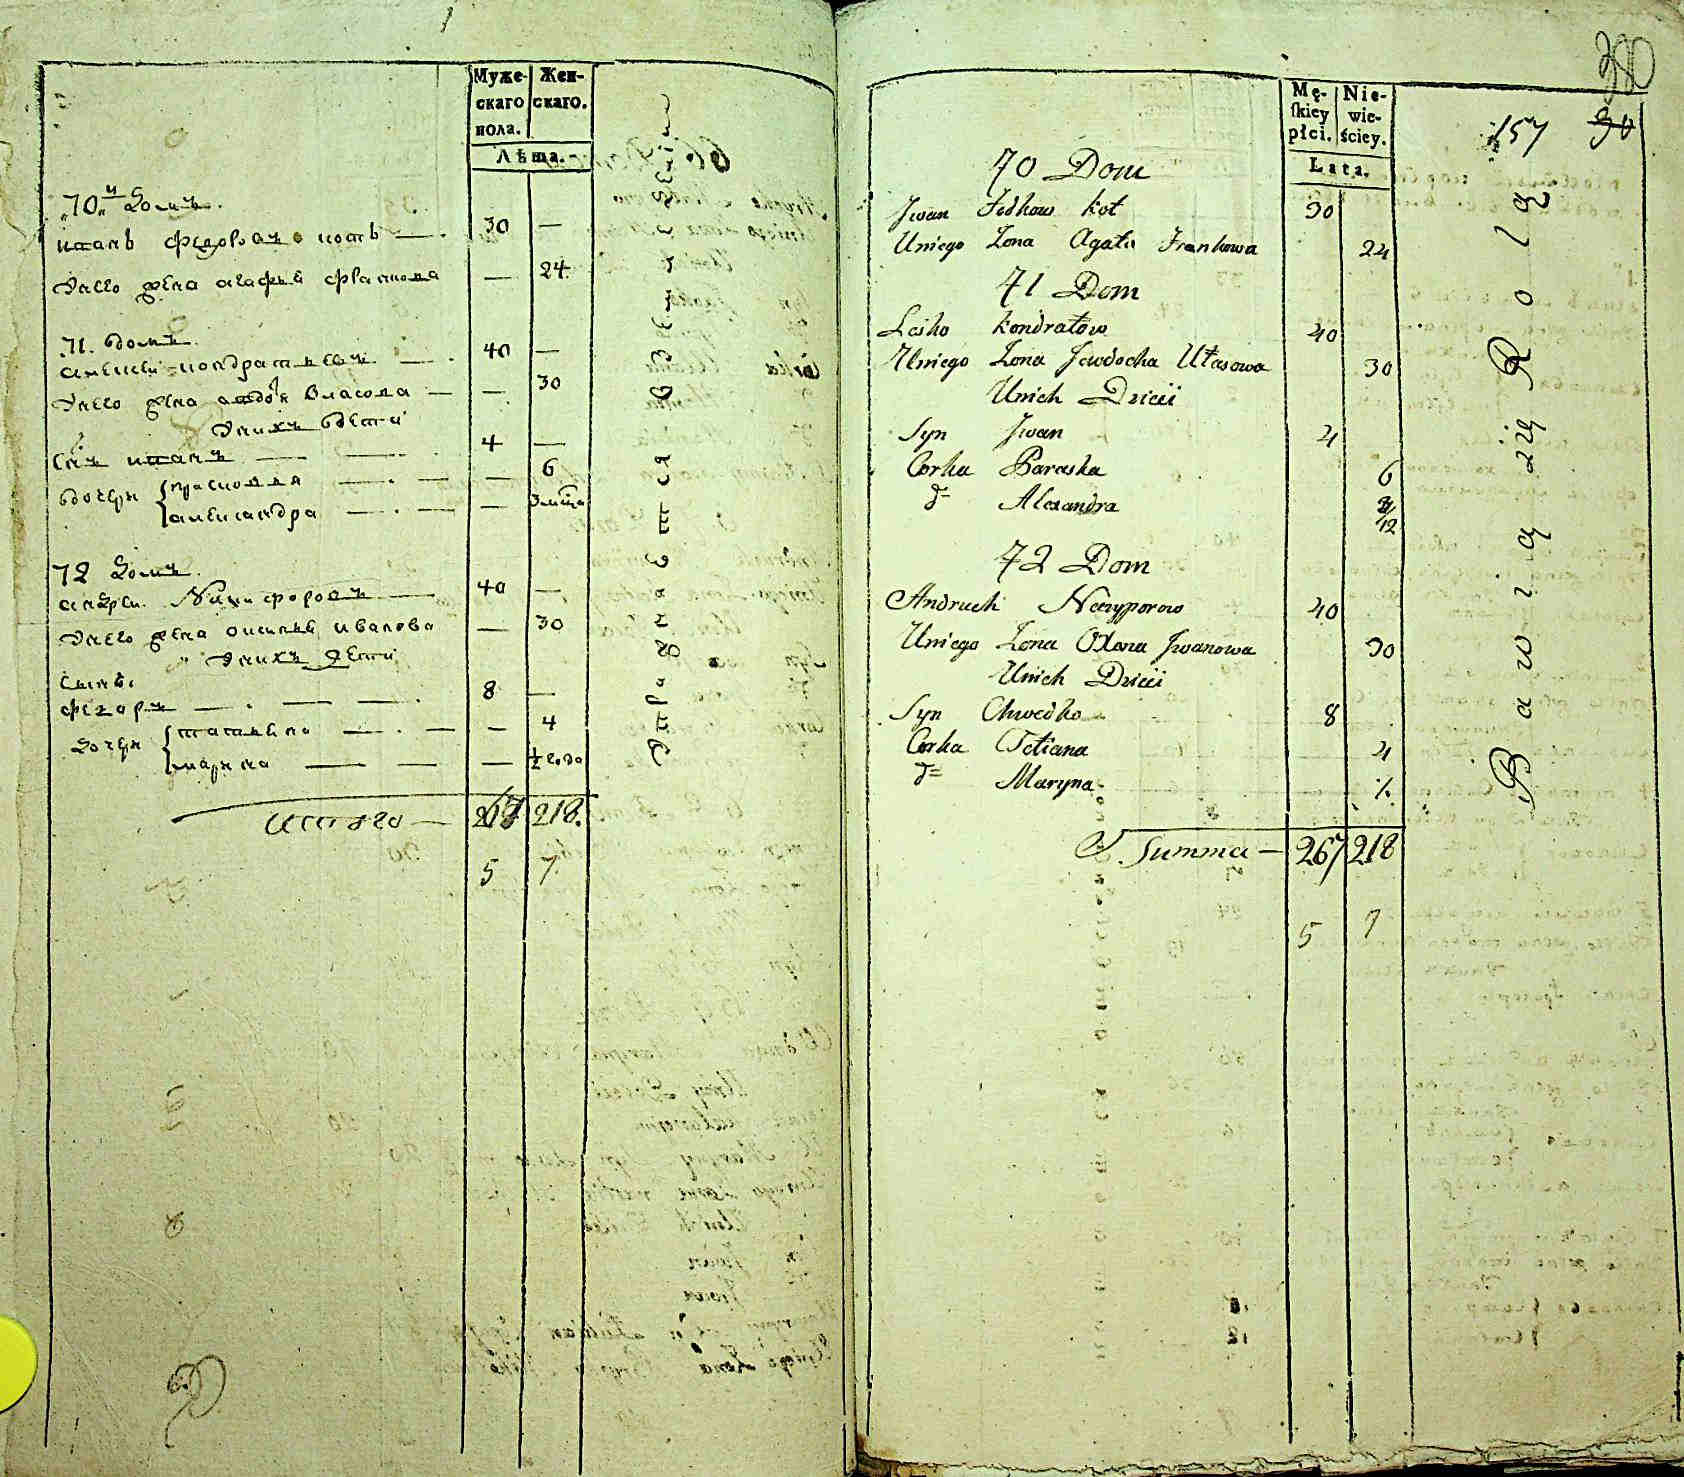 Муже-
скаго
пола.
Жен-
скаго.
Лѣта.
70й Домъ.
иванъ федоровъ котъ — 30 —
Унего жена агафия франкова — 24
71. домъ.
алексей кондратьевъ — 40 —
Унего жена авдотя Власова — — 30
Унихъ дети
Сынъ иванъ — — 4 —
дочери {прасковья — — — 6
александра — — — 3 мѣца
72 Домъ
андрей Никифоровъ — 40 —
Унего жена оксинья иванова — 30
Унихъ дети
Сынъ
федоръ — — — 8 —
Дочери {татьяна — — — 4
марина — — — ½ года
Итого — 267 218.
5 7
380
157 90
Mę-
skiey
płci.
Nie-
wie-
ściey.
Lata.
70 Dom
Jwan Fedkow Kot 30
Uniego Zona Agata Frankowa 24
71 Dom
Lesko Kondratow 40
Uniego Zona Jewdocha Ułasowa 30
Unich Dzieci
Syn Jwan 4
Corka Paraska 6
d= Alexandra 3/12
72 Dom
Andruch Neczyporow 40
Uniego Zona Oxana Jwanowa 30
Unich Dzieci
Syn Chwedko 8
Corka Tetiana 4
d= Maryna ½
Summa — 267 218
5 7
Bawiąią Rolą